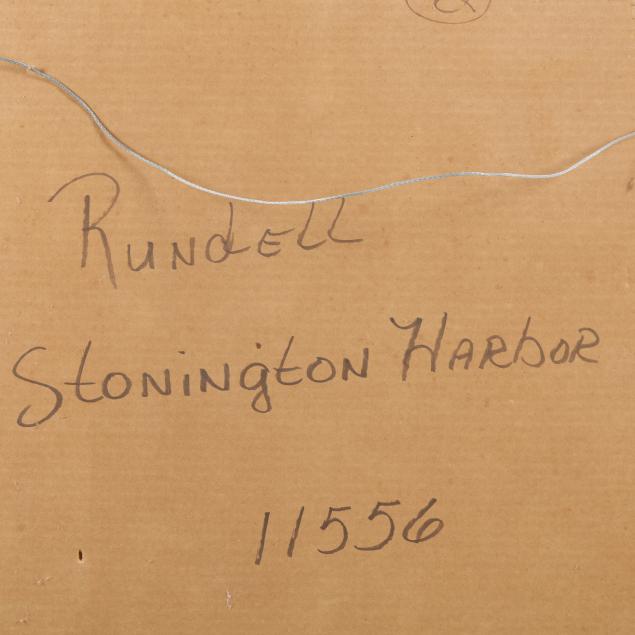 Rundell
Stonington Harbor
11556